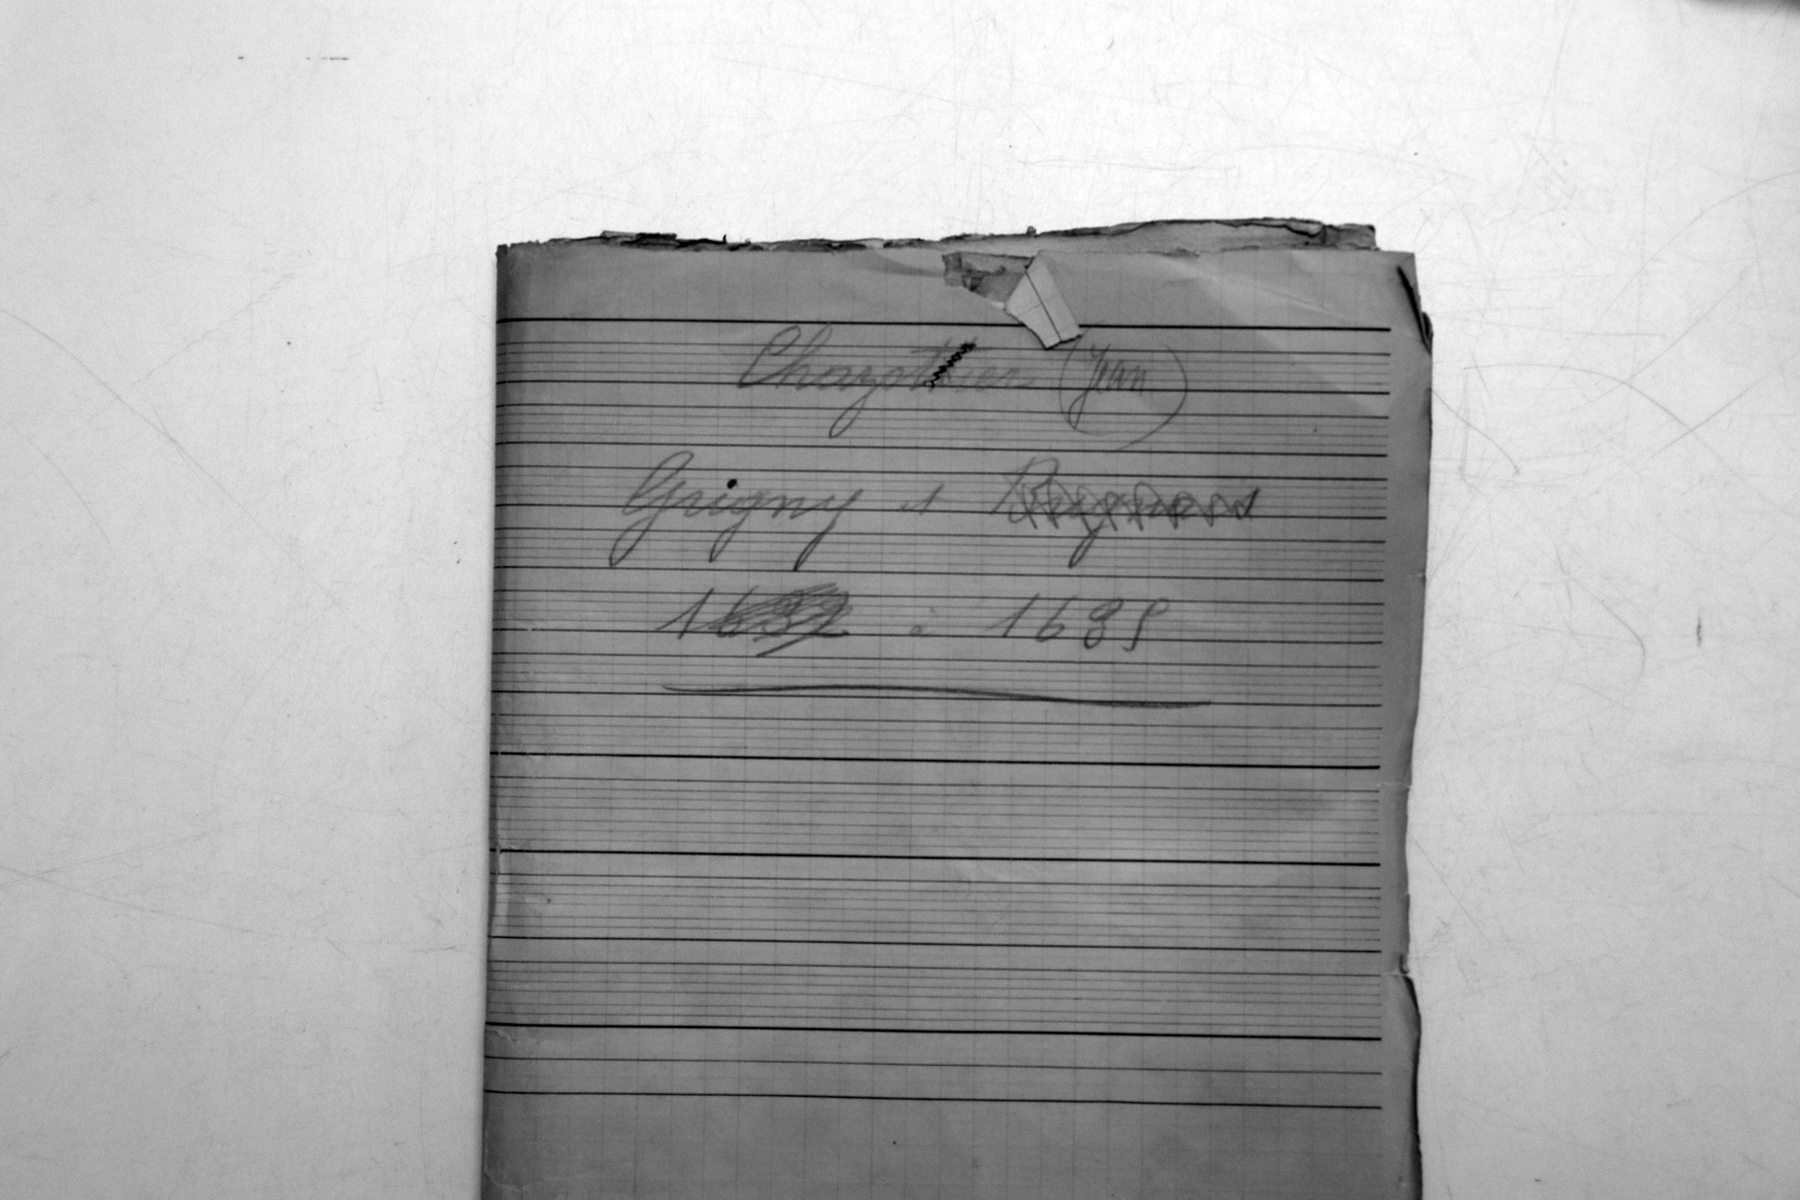 Chazottier (Jean)
Grigny et
à 1689